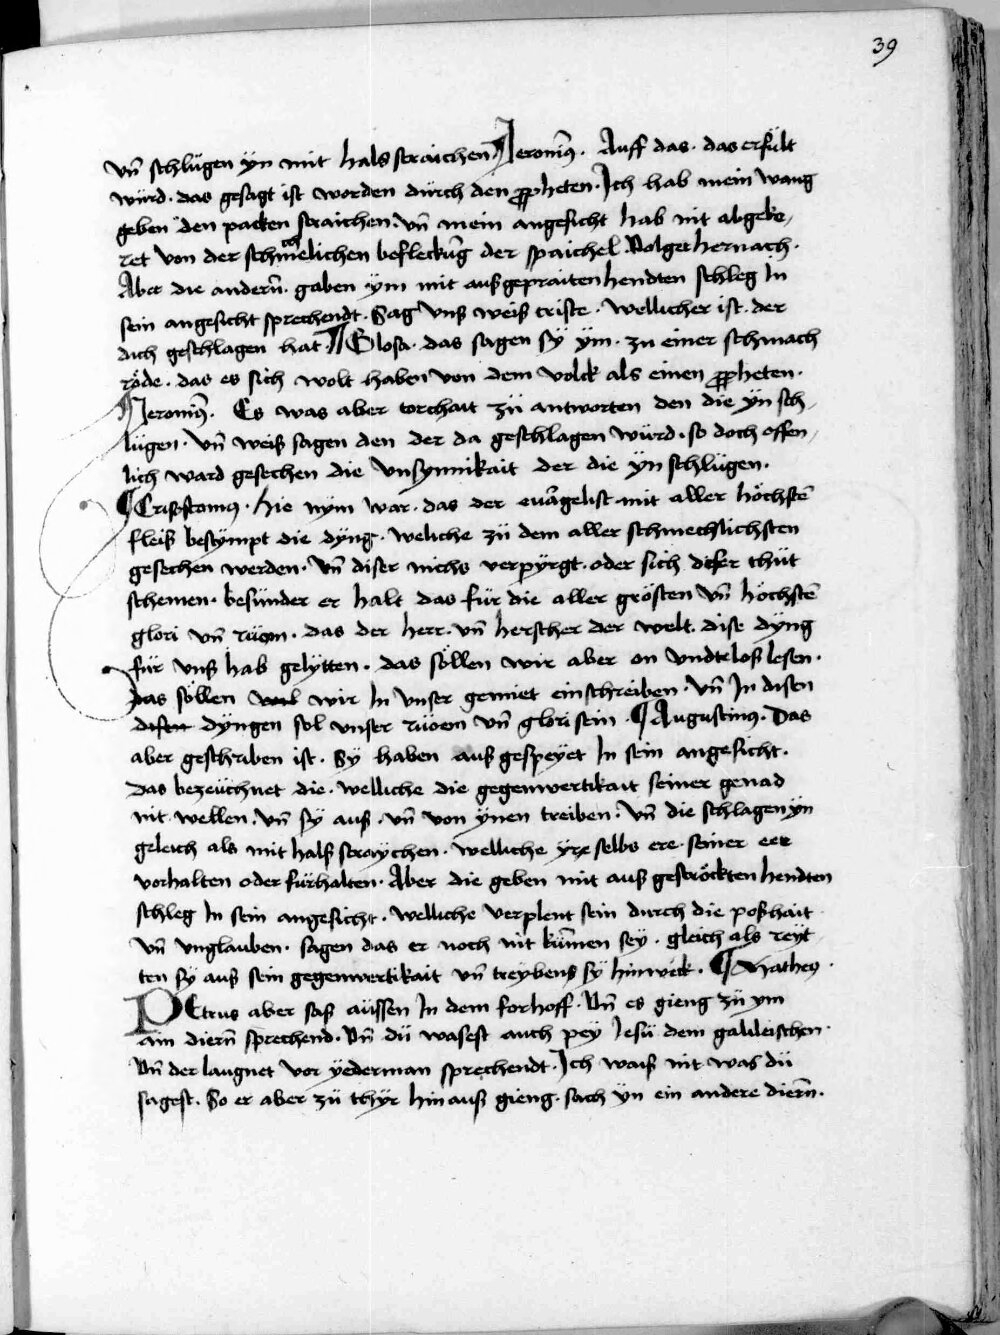 39
vn̄ schlügen ÿn mit hals straichen ¶ Jeronim9. Auff das. das erfült
würd. das gesagt ist worden dürch den ꝓpheten. Jch hab mein wang
geben den packen straichen. vn̄ mein angesicht hab nit abgeke,
ret von der schmechlichen befleckūg der spaichel. Volget hernach.
Aber die andern̄. gaben ÿm mit außgepraiten hendten schleg Jn
sein angesicht sprechendt. Sag vnß weiß criste. wellicher ist. der
dich geschlagen hat. ¶ Glosa. das sagen sÿ ÿm. zu einer schmach
röde. das es sich wolt haben von dem volck als einen ꝓpheten.
¶ Jeronim9. Es was aber torchait zü antworten den die ÿn sch,
lügen. vn̄ weiß sagen den der da geschlagen würd. so doch offen,
lich ward gesechen die vnsÿnnikait der die ÿn schlügen.
¶ Crisostomus. hie nÿm war. das der euāgelist mit aller höchstē
fleiß bestÿmpt die dÿng. weliche zü dem aller schmechlichsten
gesechen werden. vn̄ diser nichs verpÿrgt. oder sich diser thüt
schemen. besünder er halt das für die aller grösten vn̄ höchstē
glori vn̄ rüom. das der herr. vn̄ herscher der welt. dise dÿng
für vnß hab gelÿtten. das söllen wir aber on vndtrloß lesen.
das söllen wir Jn vnser gemiet einschreiben. vn̄ Jn disen
disen dÿngen sol vnser rüoem vn̄ glori sein. ¶ Augustinus. Das
aber geschriben ist. Sÿ haben auß gespeÿet Jn sein angesicht.
Das bezeüchnet die. welliche die gegenwertikait seiner genad
nit wellen. vn̄ sÿ auß. vn̄ von ÿnen treiben. vn̄ die schlagen ÿn
geleich als mit halß straÿchen. welliche ÿre selbs ere. seiner eer
vorhalten oder fürhalten. Aber die geben mit auß geströckten hendten
schleg Jn sein angesicht. welliche verplent sein durch die poßhait
vn̄ vnglauben. sagen das er noch nit kūmen seÿ. gleich als reÿt
ten sÿ auß sein gegenwertikait vn̄ treÿbens sÿ hinweck. ¶ Mathe9.
PEtrus aber saß aüssen Jn dem forhoff. Vn̄ es gieng zü ym
ain diern̄ sprechend. Vn̄ dü wasest auch peÿ Jesü dem galileischen.
Vn̄ der laugnet vor ÿederman sprechendt. Jch waiß nit was dü
sagest. So er aber zü thÿr hinauß gieng. sach ÿn ein andere diern̄.